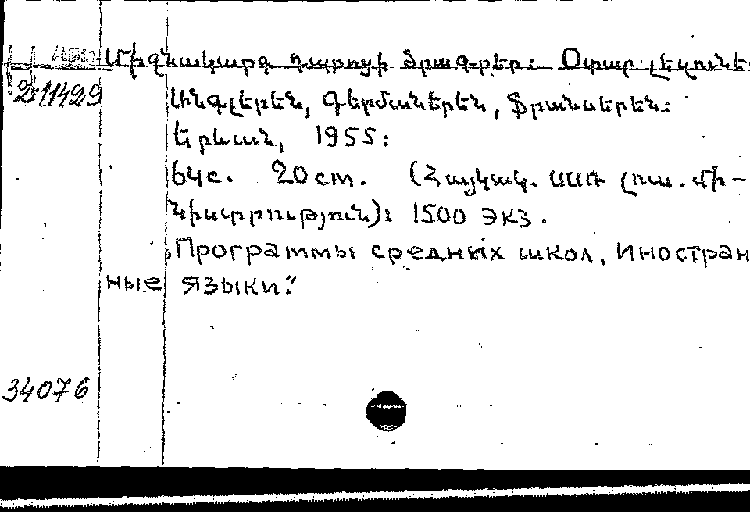 Միջնակարգ դպրոցի ծրագրեր: Օտար լեզունե
211429
Անգլերեն, Գերմաներեն, Ֆրանսերեն:
Երևան, 1955:
64с. 20 cm. (Հայկակ. ՍՍՌ լուս. մի-
նիստրություն): 1500 экз.
Программы средних школ, Иностран
ные языки."
34076